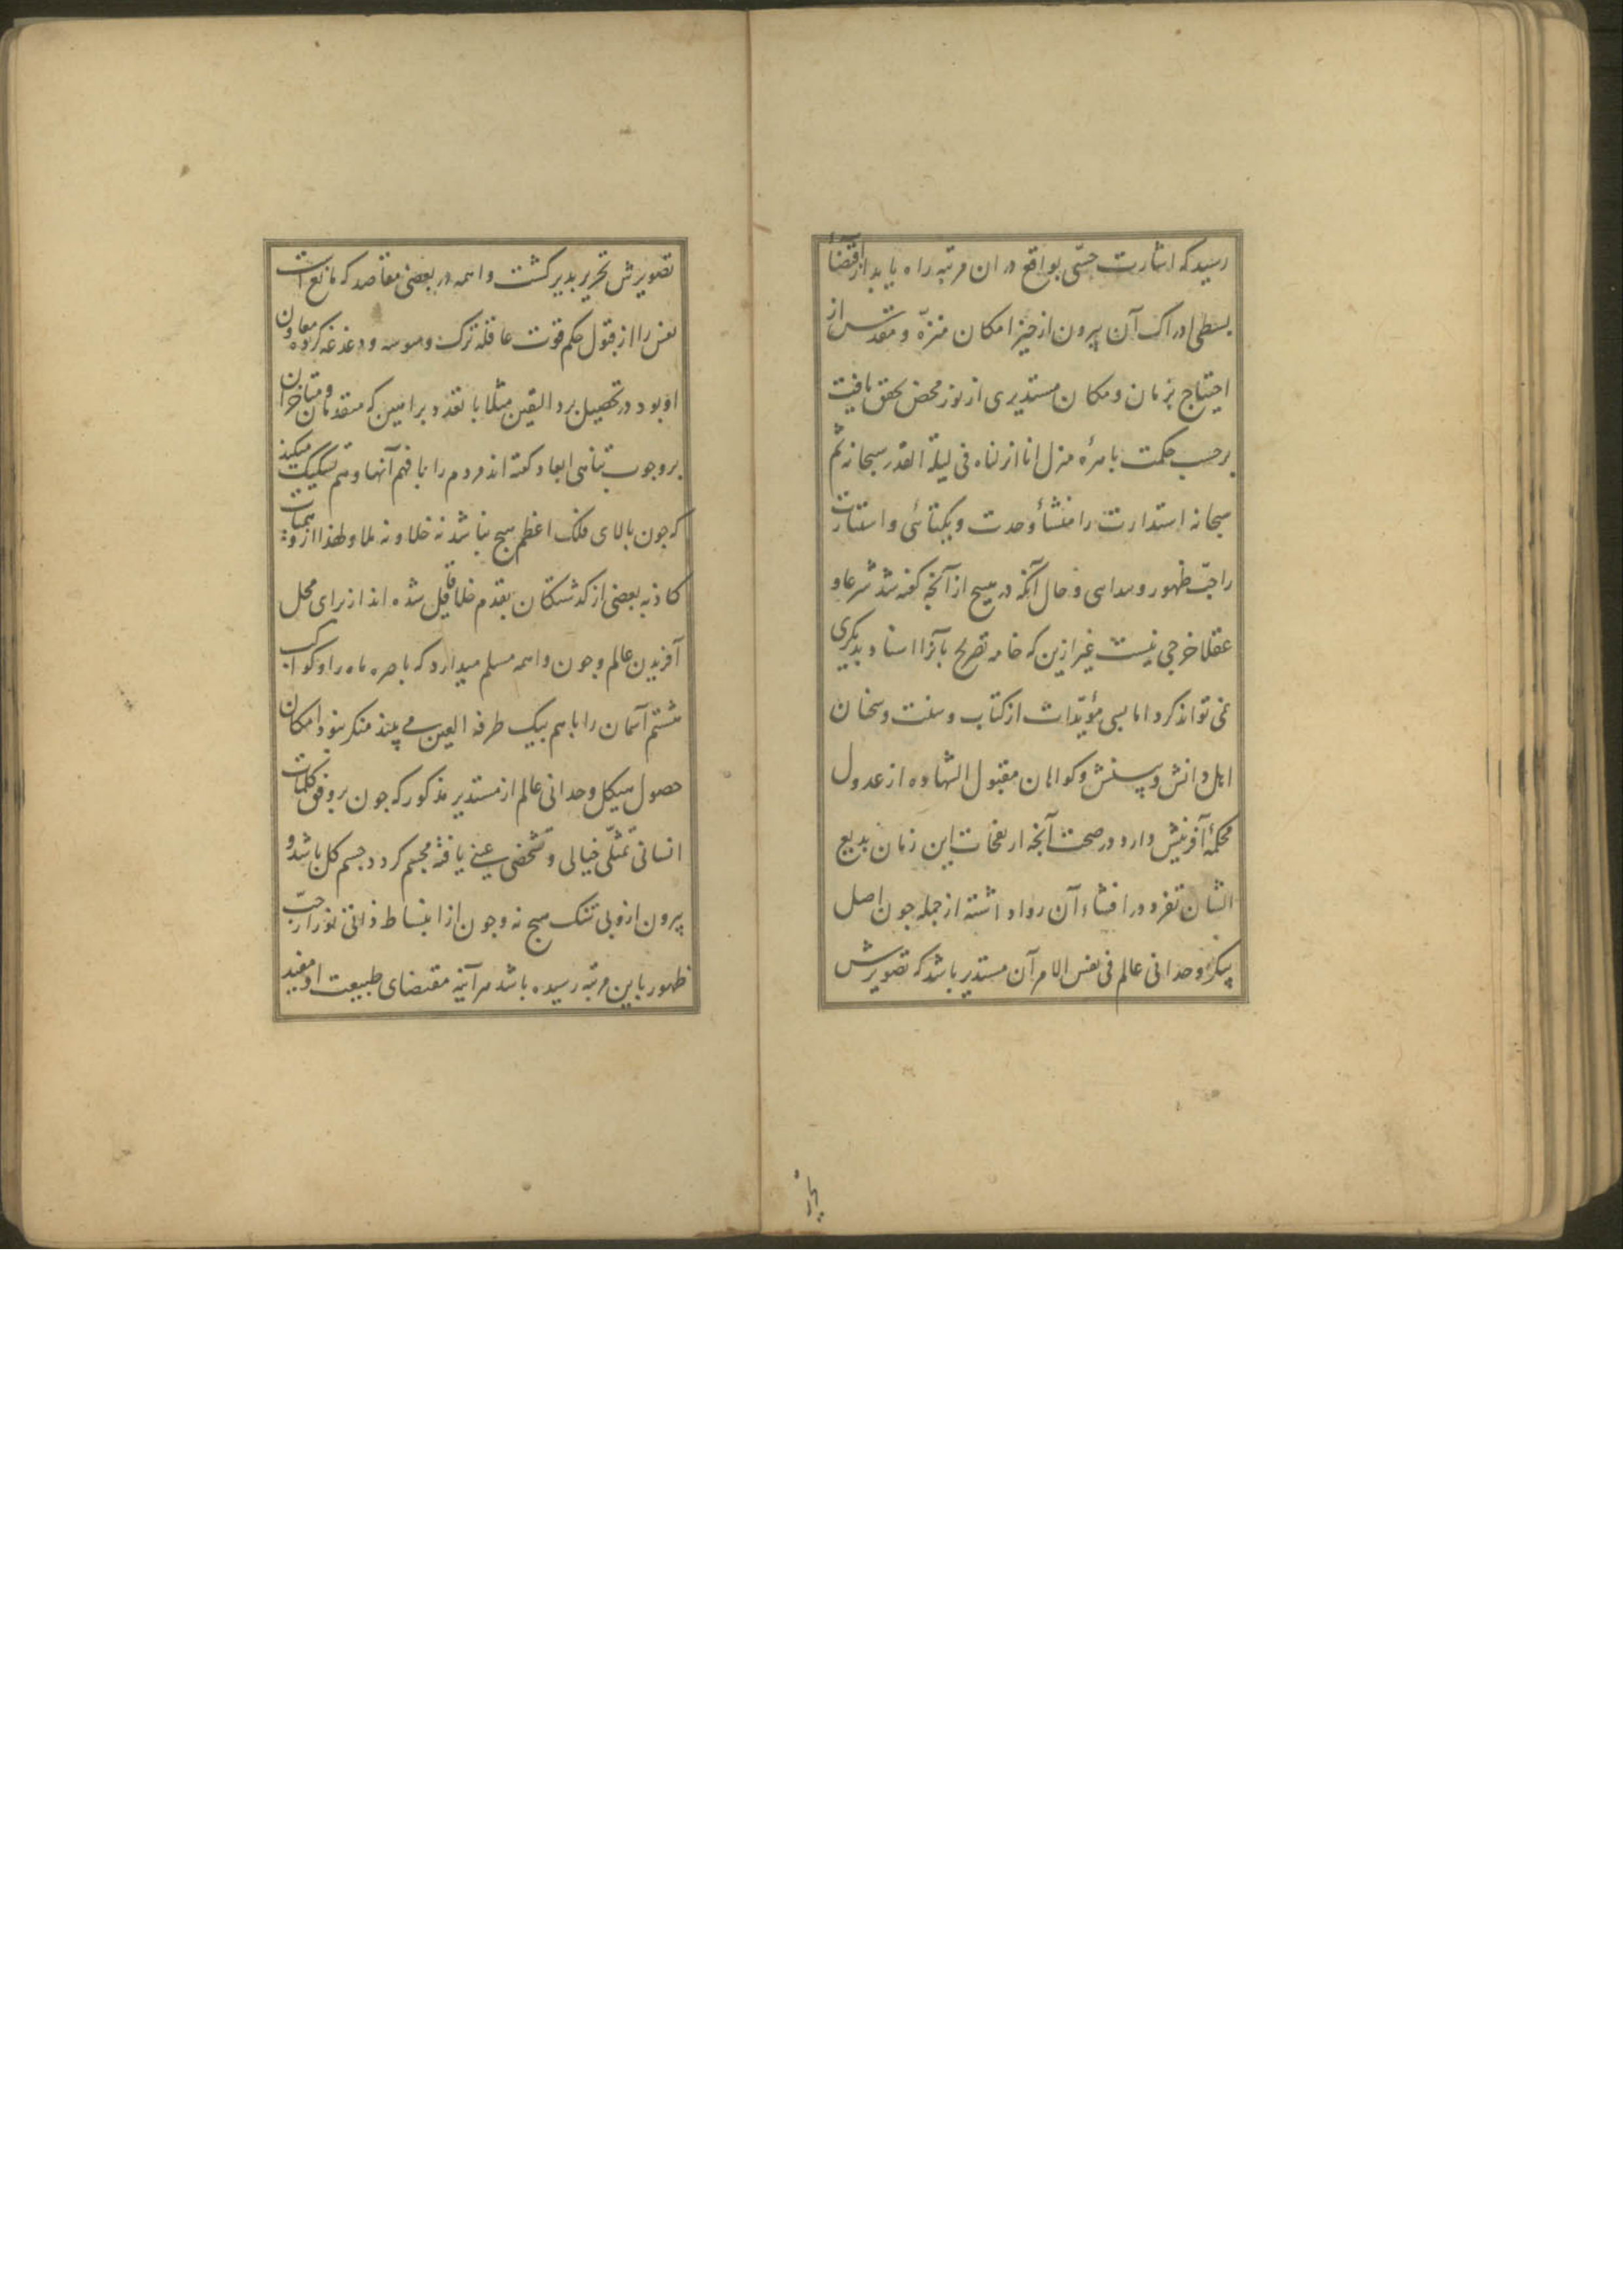 رسید که اشارت حسّی بواقع در ان مرتبه راه یابد از اقتضاءٔ
بسطی ادراک آن بیرون از حیز امکان منزّه و مقدس از
احتیاج بزمان و مکان مستدیری از نور محض تحقق یافت
برحسب حکمت بامرهٔ منزل انا انزلناه فی لیلة القدر سبحانه ثم
سبحانه استدارت را منشأ وحدت و یکتائی و استنارت
را حبّ ظهور و حال آنکه در هیچ از آنچه گفته شد شرعا و
عقلا حرجی نیست غیر ازین که خامه تصریح بآنرا اسناد بدیگری
نمی تواند کرد اما بسی مؤیّدات از کتاب و سنت و سخان
اهل دانش و بینش و کواهان مقبول الشهاده از عدول
محکمهٔ آفرینش دارد در صحت آنچه از نفحات این زمان بدیع
الشان تفرد در افشاء آن روا داشته از جمله جون اصل
پیکر وحدانی عالم فی نفس الامر آن مستدیر باشد که تصویرش
تصویرش تحریر بدیر کشت واهمه در بعضی مقاصد که مانع است
نفس را از قبول حکم قوت عاقله ترک وسوسه و دغدغه کرده معاون
او بود در تحصیل برد الیقین مثلا با تعدد براهین که متقدمان و متاخران
بر وجوب تناهی ابعاد گفته اند مردم را با فهم آنها وهم تشکیک میکند
که جون بالای فلک اعظم هیچ نباشد نه خلا و نه ملا و لهذا از وهمیات
کاذبه بعضی از کذشتکان بقدم خلا قایل شده اند از برای محل
آفریدن عالم و جون واهمه مسلم میدارد که باصره ماه را و کواکب
هشتم آسمان را با هم بیک طرفة العین می بیند منکر نبود امکان
حصول هیکل وحدانی عالم از مستدیر مذکور که جون بر وفق کلمات
انسانی تمثلی خیالی و تشخصی عینی یافته مجسم کردد جسم کل باشد و
بیرون ازو بی شک هیچ نه و جون از انبساط ذاتی نور را حبّ
ظهور باین مرتبه رسیده باشد هر آینه مقتضای طبیعت او مفید